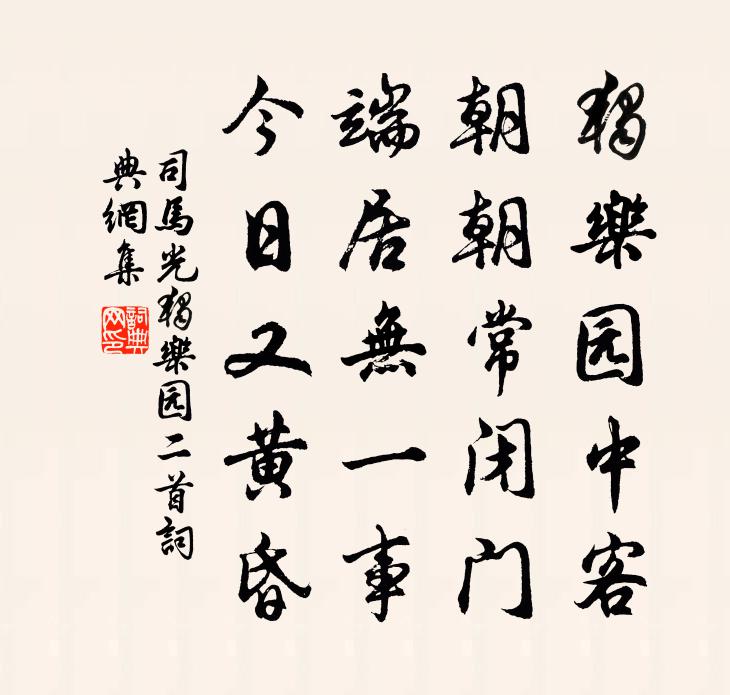 獨樂园中客
朝朝常闭门
端居無一事
今日又黄昏
司馬光獨樂园二首詞
典網集
詞典
网印